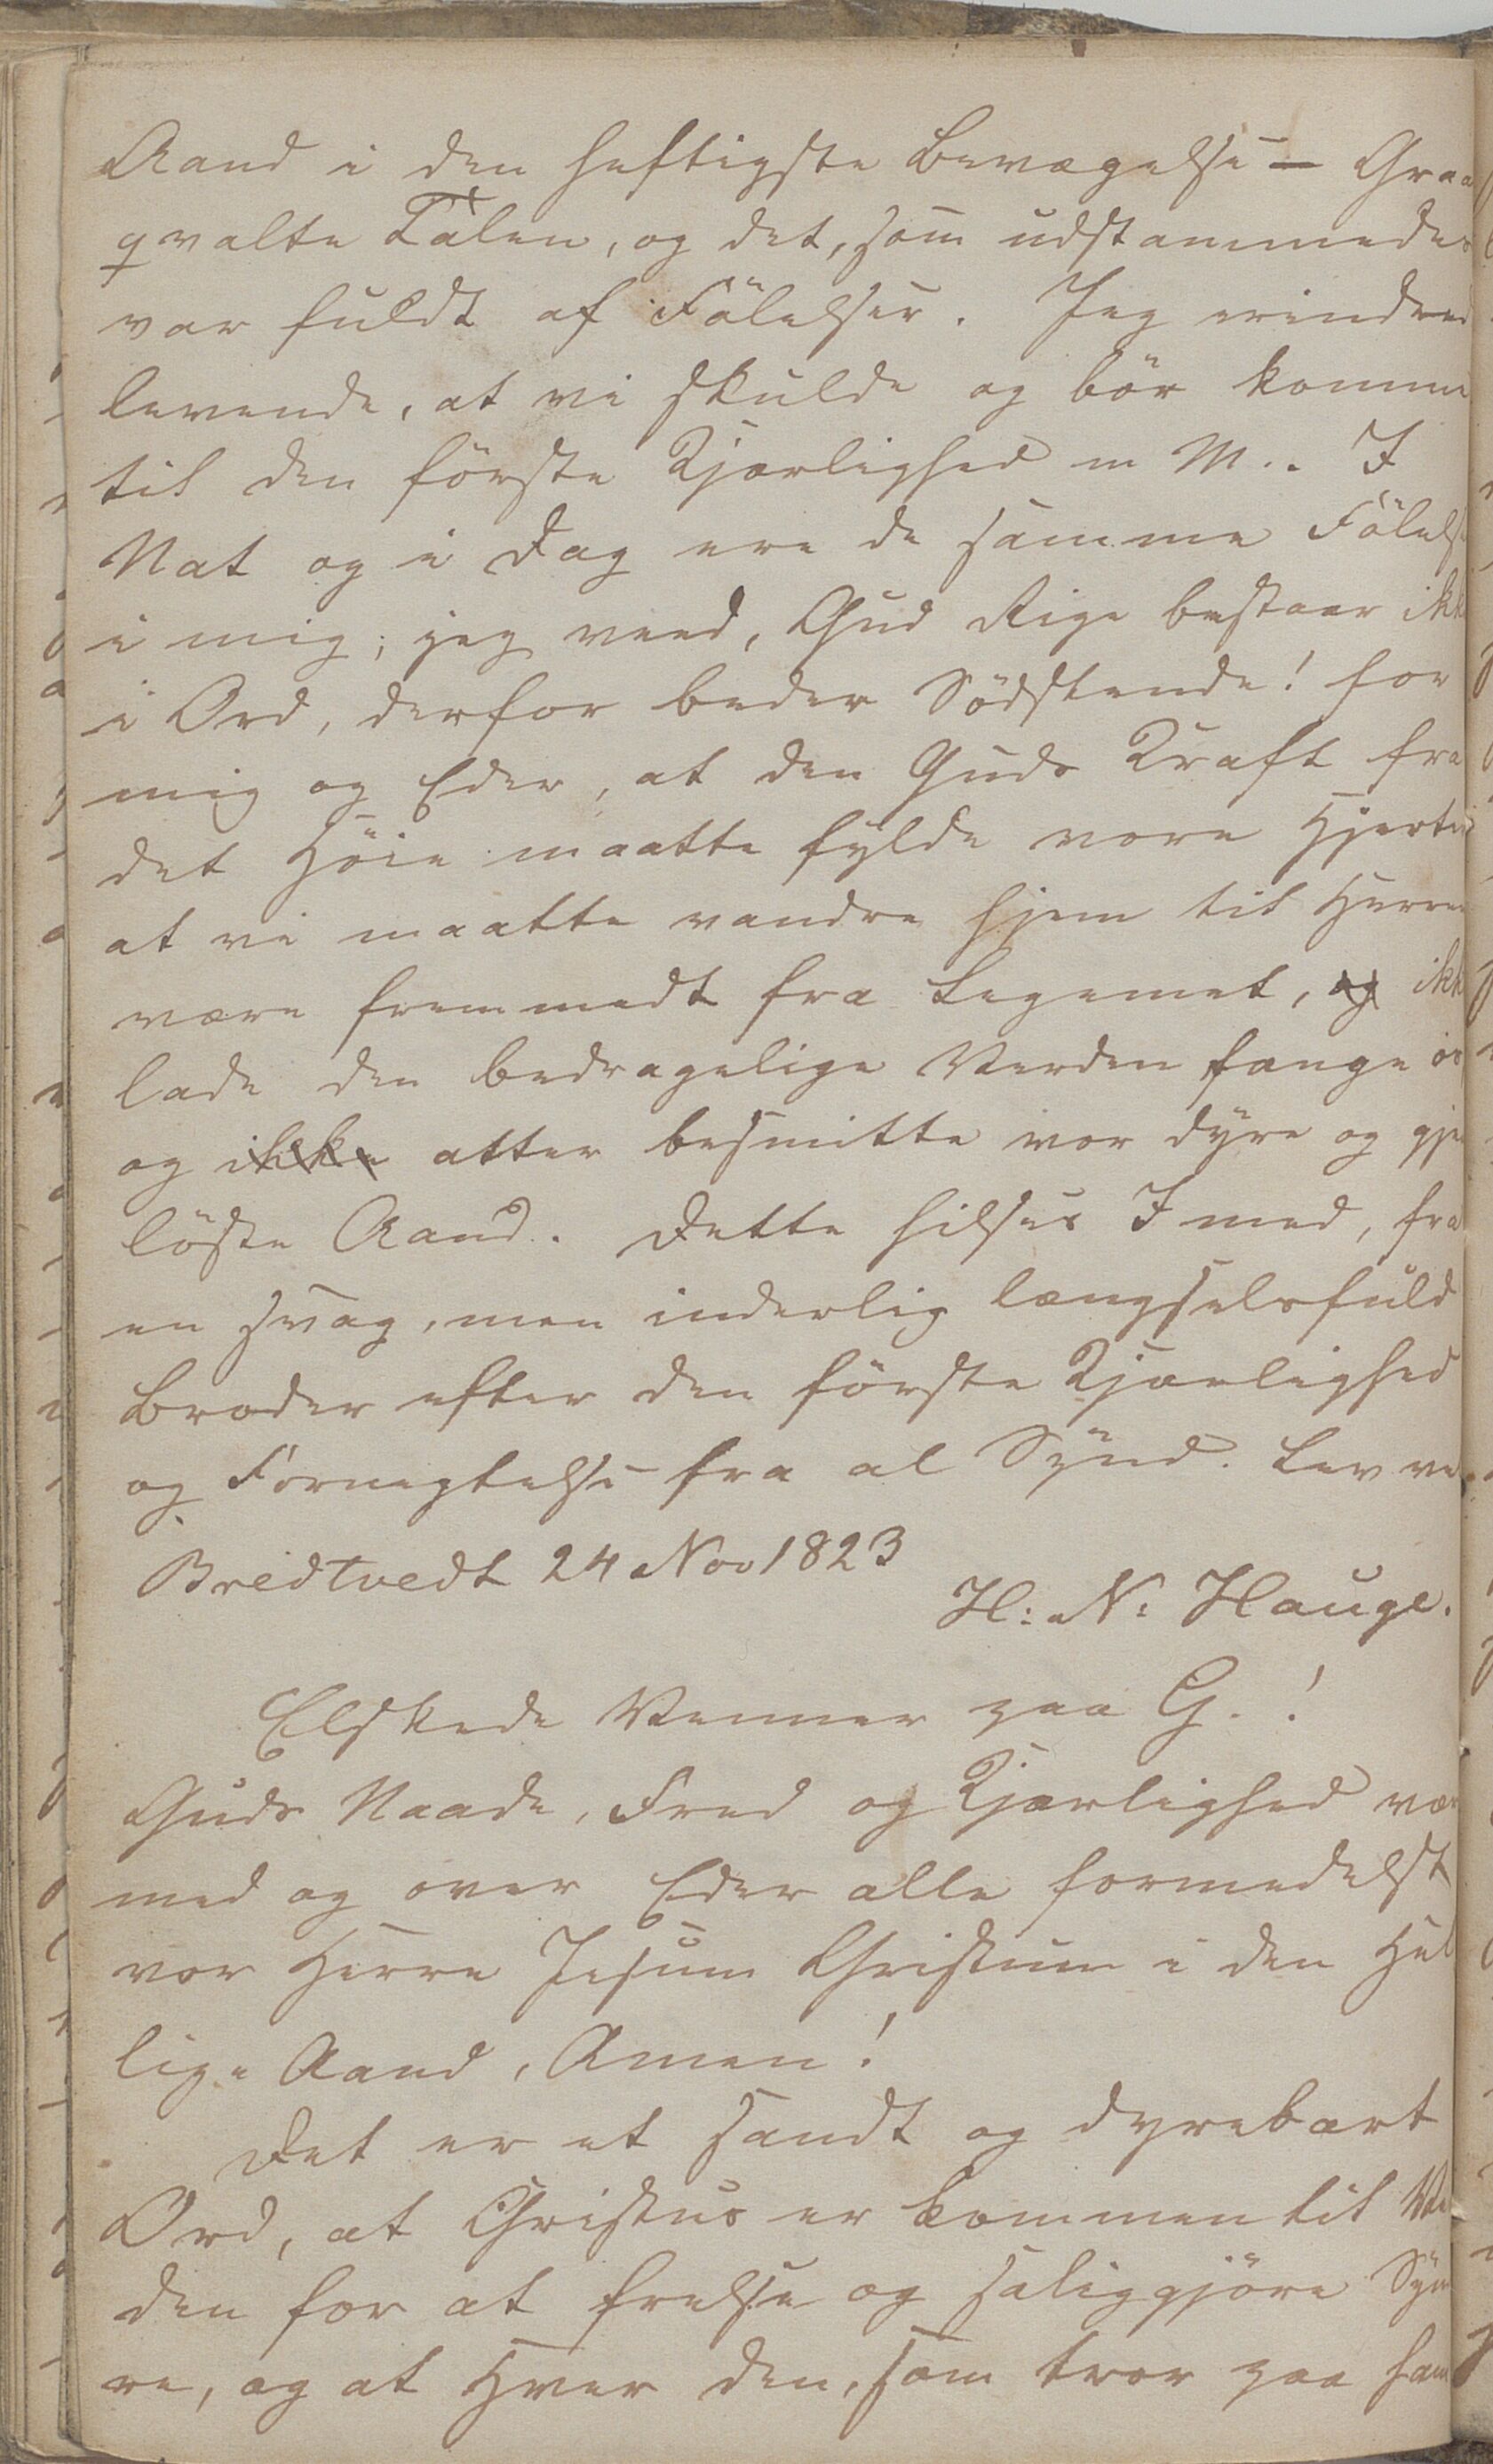 Aand i den heftigste Bevægelse — Graa
qvalte Talen, og det, som udstammedes
var fuldt af Fölelser. Jeg erindred
levende, at vi skulde og bör komme
til den förste Kjærlighed m M.. I
Nat og i Dag ere de samme Fölels
i mig; jeg veed, Gud Rige bestaaer ikk
i Ord, derfor beder Södskende! for
mig og Eder, at den Guds Kraft fra
det Höie maatte fylde vore Hjerter
at vi maatte vandre hjem til Herren
være fremmedt fra Legemet, og ikk
lade den bedragelige Verden fange os
og ikke atter besmitte vor dyre og gjen
löste Aand. Dette hilses I med, fra
en svag, men inderlig længselsfuld
Broder efter den förste Kjærlighed
og Fornegtelse fra al Synd. Lev vel
Bredtvedt 24 Nov 1823
H: N: Hauge.
Elskede Venner paa G.!
Guds Naade, Fred og Kjærlighed vær
med og over Eder alle formedelst
vor Herre Jesum Christum i den Hel
lige Aand, Amen!
Det er et sandt og dyrebart
Ord, at Christus er kommen til Ve
den for at frelse og saliggjöre Syn
re, og at Hver den, som troer paa ham